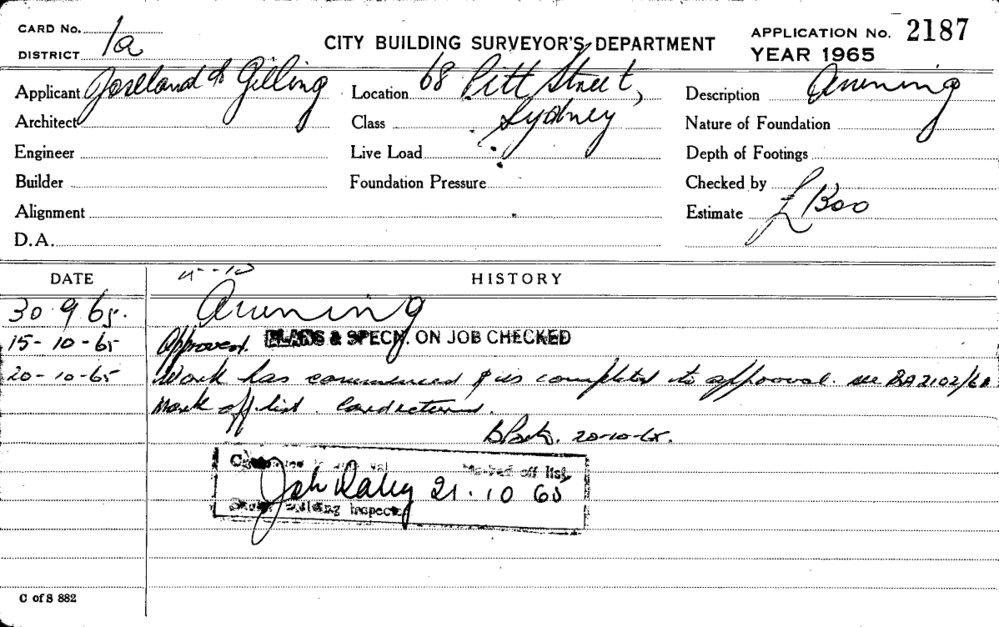 CARD No. 1a
DISTRICT
CITY BUILDING SURVEYOR'S DEPARTMENT
APPLICATION No. 2187
YEAR 1965
Applicant Joseland & Gilling
Location 68 Pitt Street,
Sydney
Description Awning
Architect
Class
Nature of Foundation
Engineer
Live Load
Depth of Footings
Builder
Foundation Pressure
Checked by
Alignment
Estimate £1300
D.A.
DATE
HISTORY
30.9.65. Awning
15-10-65 Approved. PLANS & SPECN. ON JOB CHECKED
20-10-65 Work has commenced & is completed to approval. see BA2102/60
Mark off list. Card returned.
20-10-65.
Completed Marked off list
21.10 65
Building Inspector
C of S 882